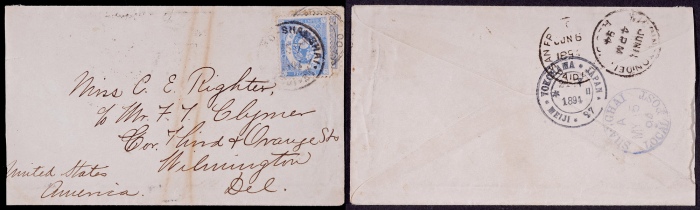 SHANGHAI
Miss C. E. Righter,
c/o Mr. F. T. Clymer
Cor. Third & Orange Sts
Wilmington
Del.
United States
America.
JUN 6
PAID
JUN
4 PM
94
YOKOHAMA JAPAN
1894
MEIJI 27
SHANGHAI LOCAL POST
MA
94